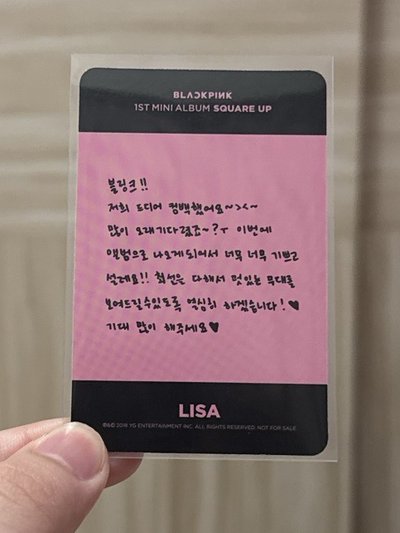 BLACKPINK
1ST MINI ALBUM SQUARE UP
블링크!!
저희 드디어 컴백했어요~><~
많이 오래기다렸죠~?ㅜ 이번에
앨범으로 나오게되어서 너무 너무 기쁘고
설레요!! 최선을 다해서 멋있는 무대를
보여드릴수있도록 열심히 하겠습니다!♥
기대 많이 해주세요♥
LISA
℗&© 2018 YG ENTERTAINMENT INC. ALL RIGHTS RESERVED. NOT FOR SALE